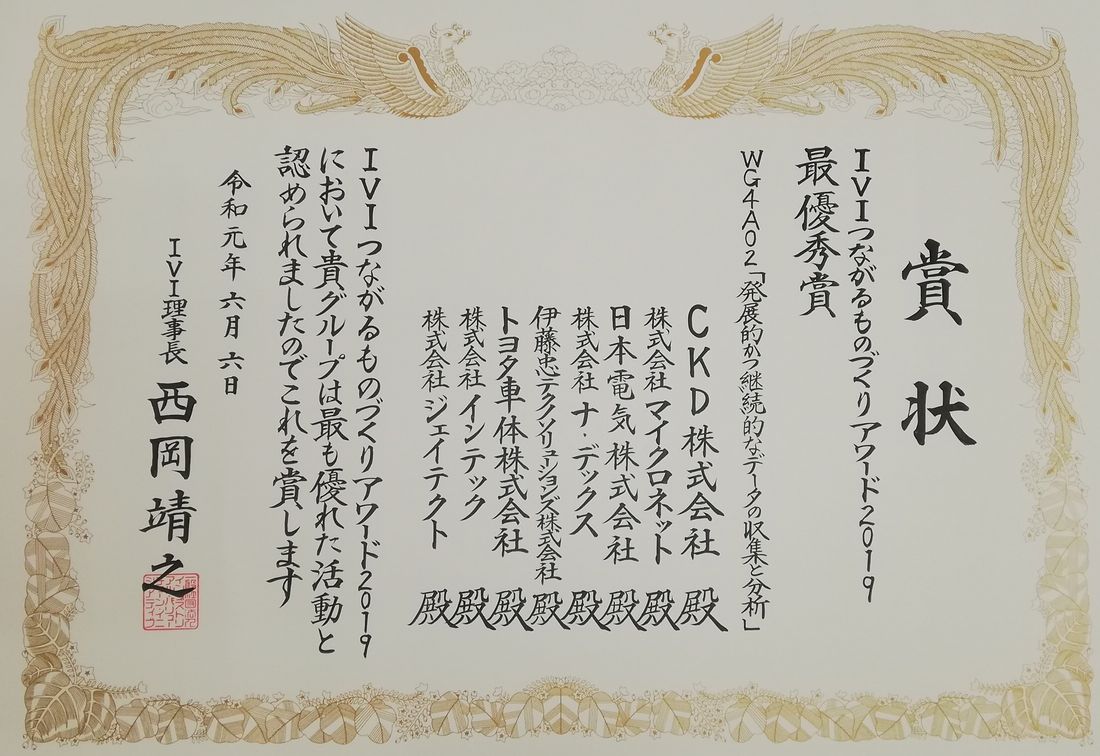 賞状
IVIつながるものづくりアワード2019
最優秀賞
WG4A02「発展的かつ継続的なデータの収集と分析」
CKD株式会社 殿
株式会社マイクロネット 殿
日本電気株式会社 殿
株式会社ナ・デックス 殿
伊藤忠テクノソリューションズ株式会社 殿
トヨタ車体株式会社 殿
株式会社インテック 殿
株式会社ジェイテクト 殿
IVIつながるものづくりアワード2019
において貴グループは最も優れた活動と
認められましたのでこれを賞します
令和元年六月六日
IVI理事長 西岡靖之